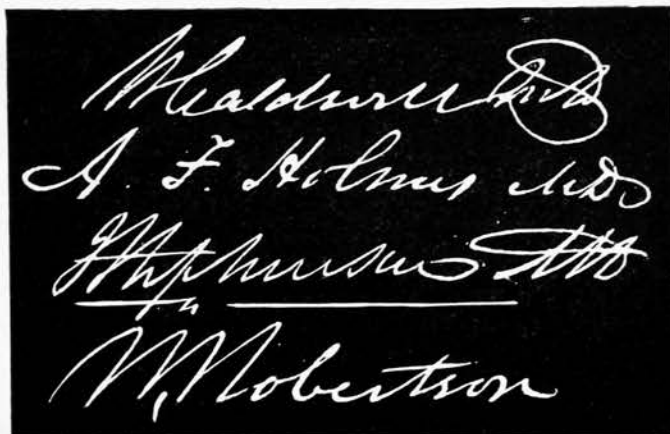 W Caldwell M.D.
A. F. Holmes M.D.
J Stephenson MD
W, Robertson